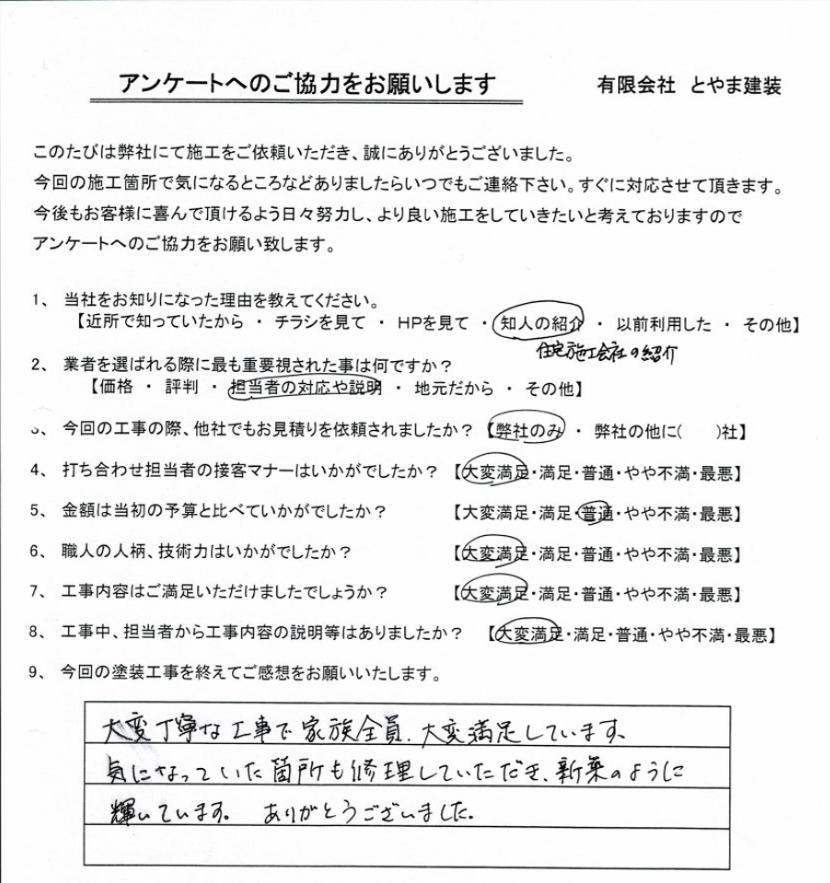 アンケートへのご協力をお願いします 有限会社 とやま建装
このたびは弊社にて施工をご依頼いただき、誠にありがとうございました。
今回の施工箇所で気になるところなどありましたらいつでもご連絡下さい。すぐに対応させて頂きます。
今後もお客様に喜んで頂けるよう日々努力し、より良い施工をしていきたいと考えておりますので
アンケートへのご協力をお願い致します。
1、 当社をお知りになった理由を教えてください。
【近所で知っていたから ・ チラシを見て ・ HPを見て ・ 知人の紹介 ・ 以前利用した ・ その他】
住宅施工会社の紹介
2、 業者を選ばれる際に最も重要視された事は何ですか？
【価格 ・ 評判 ・ 担当者の対応や説明 ・ 地元だから ・ その他】
3、 今回の工事の際、他社でもお見積りを依頼されましたか？ 【弊社のみ ・ 弊社の他に( )社】
4、 打ち合わせ担当者の接客マナーはいかがでしたか？ 【大変満足・満足・普通・やや不満・最悪】
5、 金額は当初の予算と比べていかがでしたか？ 【大変満足・満足・普通・やや不満・最悪】
6、 職人の人柄、技術力はいかがでしたか？ 【大変満足・満足・普通・やや不満・最悪】
7、 工事内容はご満足いただけましたでしょうか？ 【大変満足・満足・普通・やや不満・最悪】
8、 工事中、担当者から工事内容の説明等はありましたか？ 【大変満足・満足・普通・やや不満・最悪】
9、 今回の塗装工事を終えてご感想をお願いいたします。
大変丁寧な工事で家族全員、大変満足しています。
気になっていた箇所も修理していただき、新築のように
輝いています。 ありがとうございました。